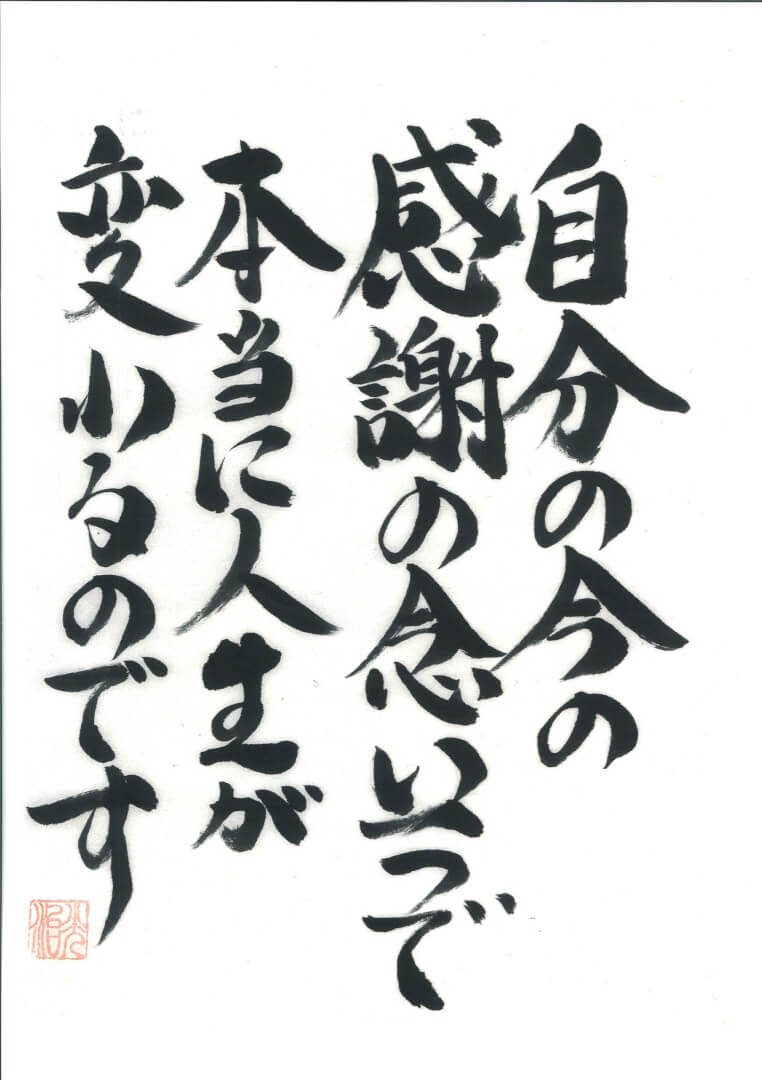 自分の今の
感謝の念い一つで
本当に人生が
変わるのです